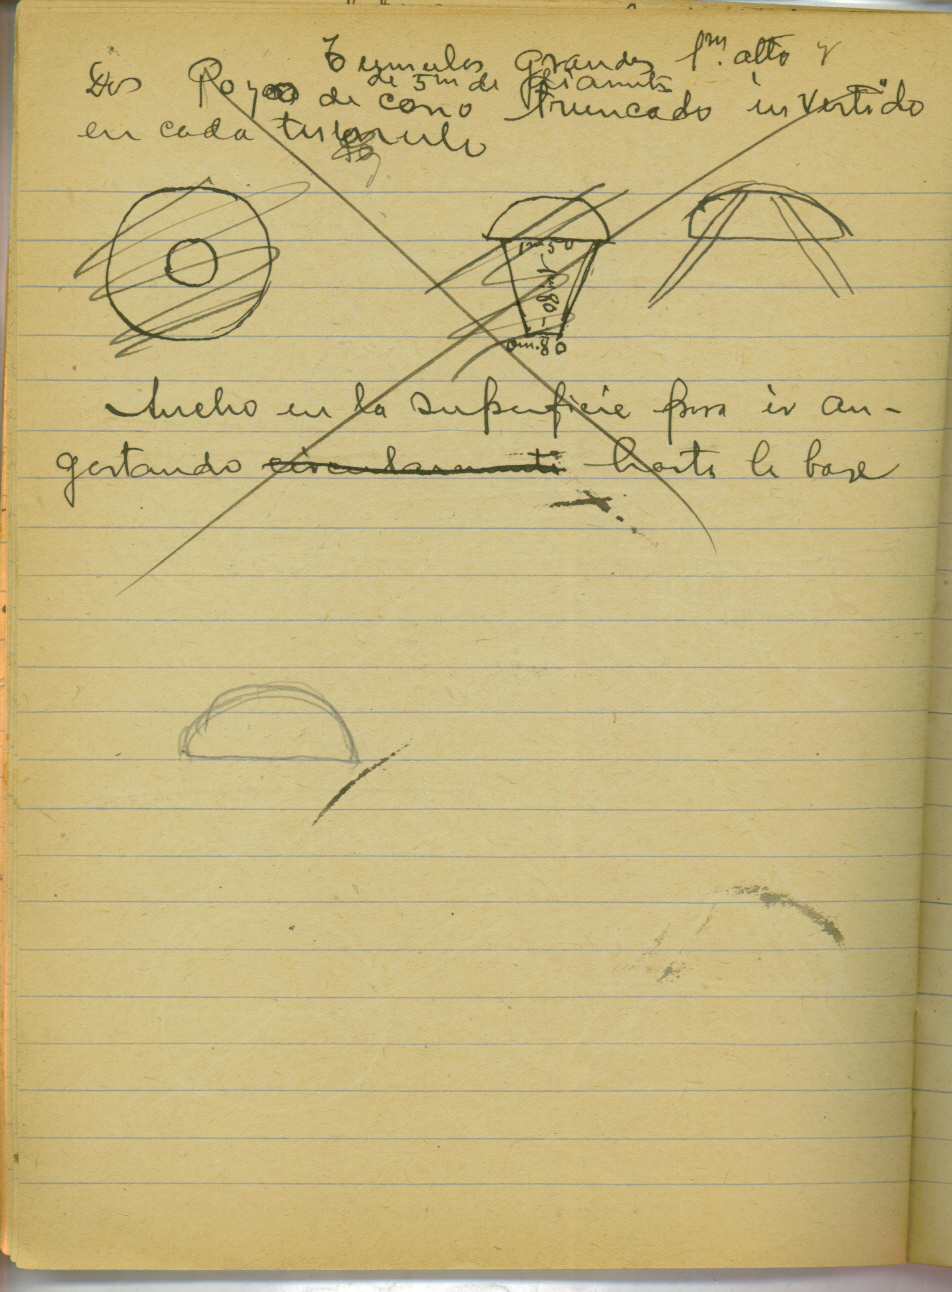 Tumulos grandes 1m. alto y
de 5m de diametro
Dos Poyos de cono truncado invertido
en cada tumulo
1m50
1m80
0m.80
Ancho en la superficie para ir an-
gostando circularmente hasta la base